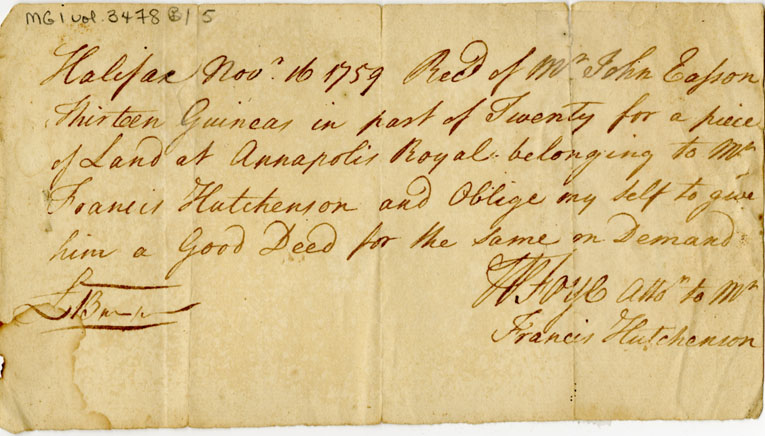 MG1 vol. 3478 B/5
Halifax Novr. 16 1759 Recd of Mr John Easson
Thirteen Guineas in part of Twenty for a piece
of Land at Annapolis Royal belonging to Mr
Francis Hutchenson and Oblige my self to give
him a Good Deed for the same on Demand
Foye Atto to Mr
£13
Francis Hutchenson